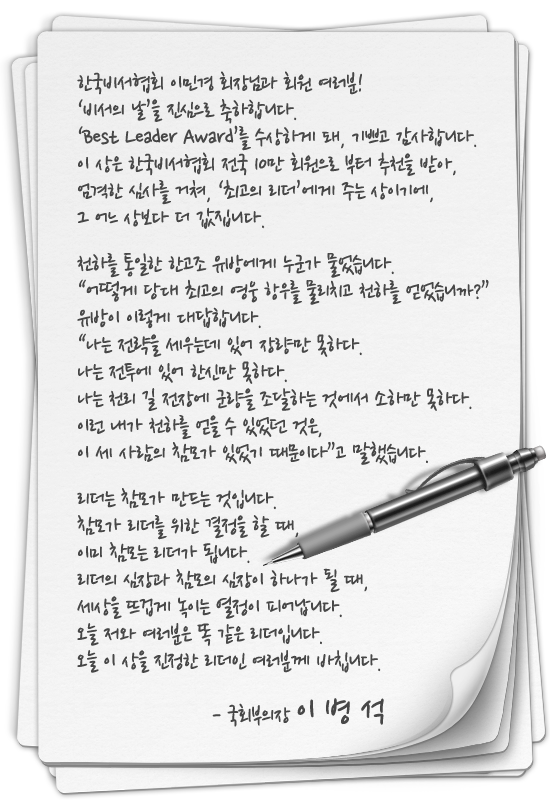 한국비서협회 이민경 회장님과 회원 여러분!
'비서의 날'을 진심으로 축하합니다.
'Best Leader Award'를 수상하게 돼, 기쁘고 감사합니다.
이 상은 한국비서협회 전국 10만 회원으로 부터 추천을 받아,
엄격한 심사를 거쳐, '최고의 리더'에게 주는 상이기에,
그 어느 상보다 더 값집니다.
천하를 통일한 한고조 유방에게 누군가 물었습니다.
"어떻게 당대 최고의 영웅 항우를 물리치고 천하를 얻었습니까?"
유방이 이렇게 대답합니다.
"나는 전략을 세우는데 있어 장량만 못하다.
나는 전투에 있어 한신만 못하다.
나는 천리 길 전장에 군량을 조달하는 것에서 소하만 못하다.
이런 내가 천하를 얻을 수 있었던 것은,
이 세 사람의 참모가 있었기 때문이다"고 말했습니다.
리더는 참모가 만드는 것입니다.
참모가 리더를 위한 결정을 할 때,
이미 참모는 리더가 됩니다.
리더의 심장과 참모의 심장이 하나가 될 때,
세상을 뜨겁게 녹이는 열정이 피어납니다.
오늘 저와 여러분은 똑 같은 리더입니다.
오늘 이 상을 진정한 리더인 여러분께 바칩니다.
- 국회부의장 이 병 석